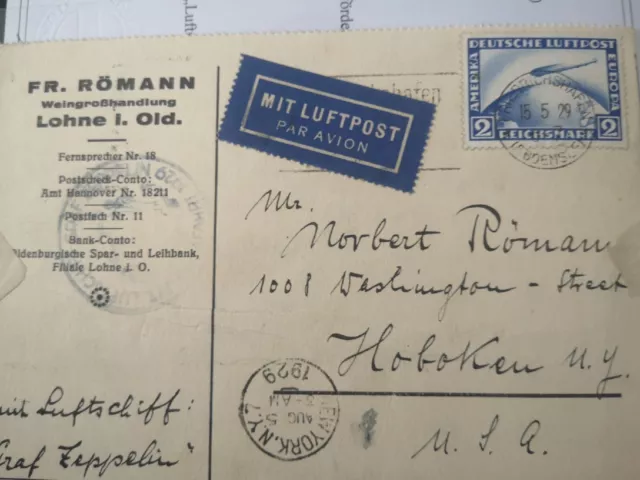 FR. RÖMANN
Weingroßhandlung
Lohne i. Old.
Fernsprecher Nr. 18
Postscheck-Conto:
Amt Hannover Nr. 18211
Postfach Nr. 11
Bank-Conto:
Oldenburgische Spar- und Leihbank,
Filiale Lohne i. O.
MIT LUFTPOST
PAR AVION
DEUTSCHE LUFTPOST
AMERIKA
EUROPA
2 REICHSMARK 2
FRIEDRICHSHAFEN
15 5 29
(BODENSEE)
Mr.
Norbert Römann
1008 Washington - Street
Hoboken N.Y.
U.S.A.
NEW YORK, N.Y.
AUG 5
AM
1929
mit Luftschiff:
Graf Zeppelin"